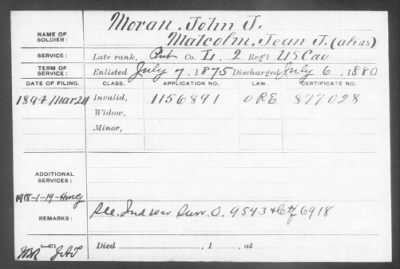 NAME OF SOLDIER: Moran, John J.
Malcolm, Jean J. (alias)
SERVICE: Late rank, Pvt Co. L, 2 Reg't US Cav
TERM OF SERVICE: Enlisted July 7, 1875 Discharged July 6, 1880
DATE OF FILING. CLASS. APPLICATION NO. LAW. CERTIFICATE NO.
1894 Mar 24 Invalid, 1156891 O R E 877028
Widow,
Minor,
ADDITIONAL SERVICES:
1918-1-19-
REMARKS: See. Ind War Surv. O. 9543 & Ctf 6918
Died , 1 , at